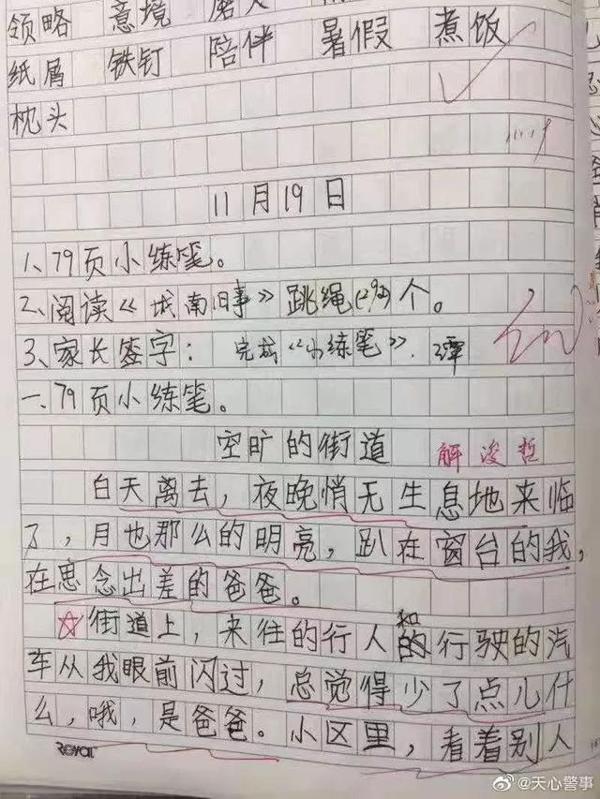 领略 意境
纸屑 铁钉 陪伴 暑假 煮饭
枕头
11月19日
1、79页小练笔。
2、阅读《城南旧事》跳绳(292)个。
3、家长签字: 完成《小练笔》. 谭
一、79页小练笔。
空旷的街道 解浚哲
白天离去，夜晚悄无生息地来临
了，月也那么的明亮，趴在窗台的我，
在思念出差的爸爸。
街道上，来往的行人和的行驶的汽
车从我眼前闪过，总觉得少了点儿什
么，哦，是爸爸。小区里，看着别人
Royal
@天心警事